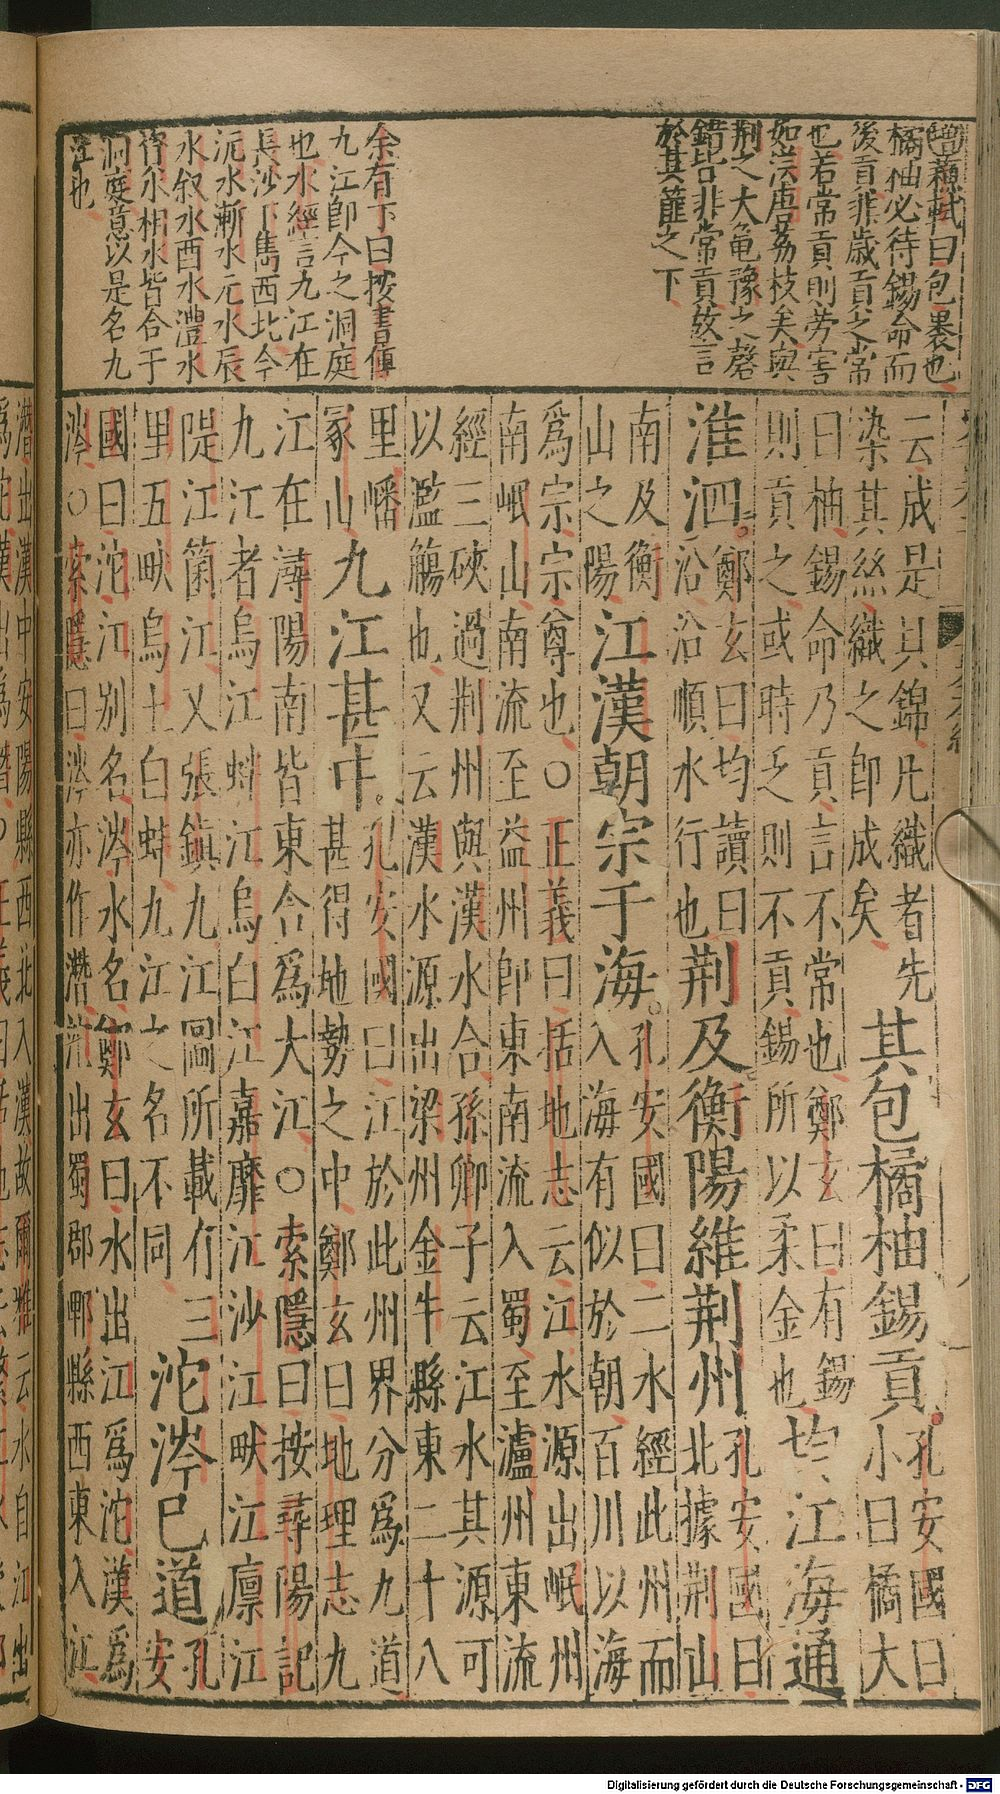 蘇軾曰包裹也
橘柚必待錫命而
後貢非歲貢之常
也若常貢則勞害
如漢唐荔枝矣與
荆之大龜豫之磬
錯皆非常貢故言
於其篚之下
余有丁曰按書傳
九江卽今之洞庭
也水經言九江在
長沙下雋西北今
沅水漸水元水辰
水叙水酉水澧水
資水湘水皆合于
洞庭意以是名九
江也
云成是貝錦凡織者先
染其絲織之卽成矣
其包橘柚錫貢
孔安國曰
小曰橘大
曰柚錫命乃貢言不常也鄭玄曰有錫
則貢之或時乏則不貢錫所以柔金也
均江海通
淮泗
鄭玄曰均讀曰
沿沿順水行也
荆及衡陽維荆州
孔安國曰
北據荆山
南及衡
山之陽
江漢朝宗于海
孔安國曰二水經此州而
入海有似於朝百川以海
爲宗宗尊也○正義曰括地志云江水源出岷州
南岷山南流至益州卽東南流入蜀至瀘州東流
經三硤過荆州與漢水合孫卿子云江水其源可
以濫觴也又云漢水源出梁州金牛縣東二十八
里嶓
冢山
九江甚中
孔安國曰江於此州界分爲九道
甚得地勢之中鄭玄曰地理志九
江在潯陽南皆東合爲大江○索隱曰按尋陽記
九江者烏江蚌江烏白江嘉靡江沙江畎江廩江
隄江箘江又張鎮九江圖所載有三
里五畎烏土白蚌九江之名不同
沱涔巳道
孔
安
國曰沱江別名涔水名鄭玄曰水出江爲沱漢爲
涔○索隱曰涔亦作潛沱出蜀郡郫縣西東入江
潛出漢中安陽縣西北入漢故爾雅云水自江出
Digitalisierung gefördert durch die Deutsche Forschungsgemeinschaft - DFG